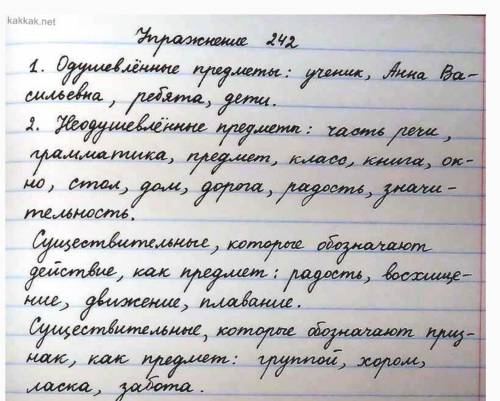 kakkak.net
Упражнение 242
1. Одушевлённые предметы: ученик, Анна Ва-
сильевна, ребята, дети.
2. Неодушевлённые предметы: часть речи,
грамматика, предмет, класс, книга, ок-
но, стол, дом, дорога, радость, значи-
тельность.
Существительные, которые обозначают
действие, как предмет: радость, восхище-
ние, движение, плавание.
Существительные, которые обозначают приз-
нак, как предмет: группой, хором,
ласка, забота.